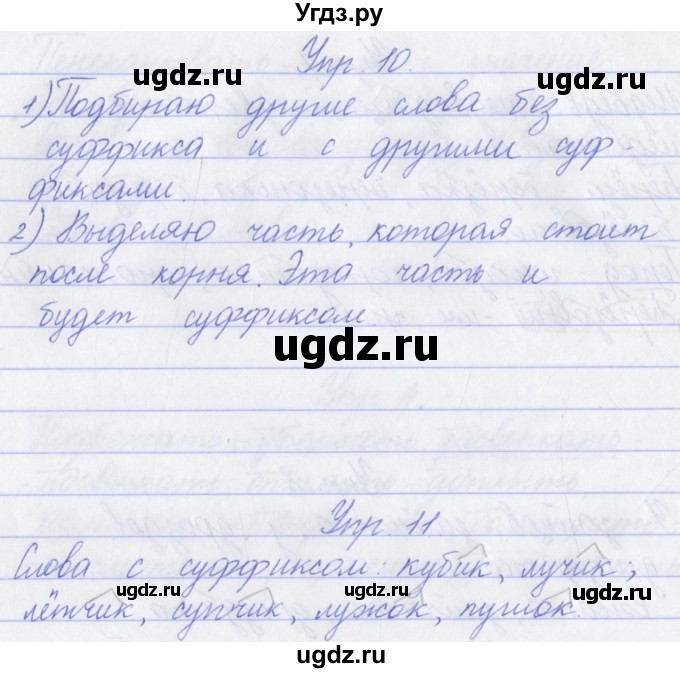 Угдз.ру
Упр. 10.
ugdz.ru ugdz.ru
1) Подбираю другие слова без
суффикса и с другими суф-
ugdz.ru
фиксами.
2) Выделяю часть, которая стоит
после корня. Эта часть и
будет суффиксом.
ugdz.ru
Упр. 11.
Слова с суффиксом: кубик, лучик;
ugdz.ru ugdz.ru
лётчик, супчик, лужок, пушок.
ugdz.ru
ugdz.ru